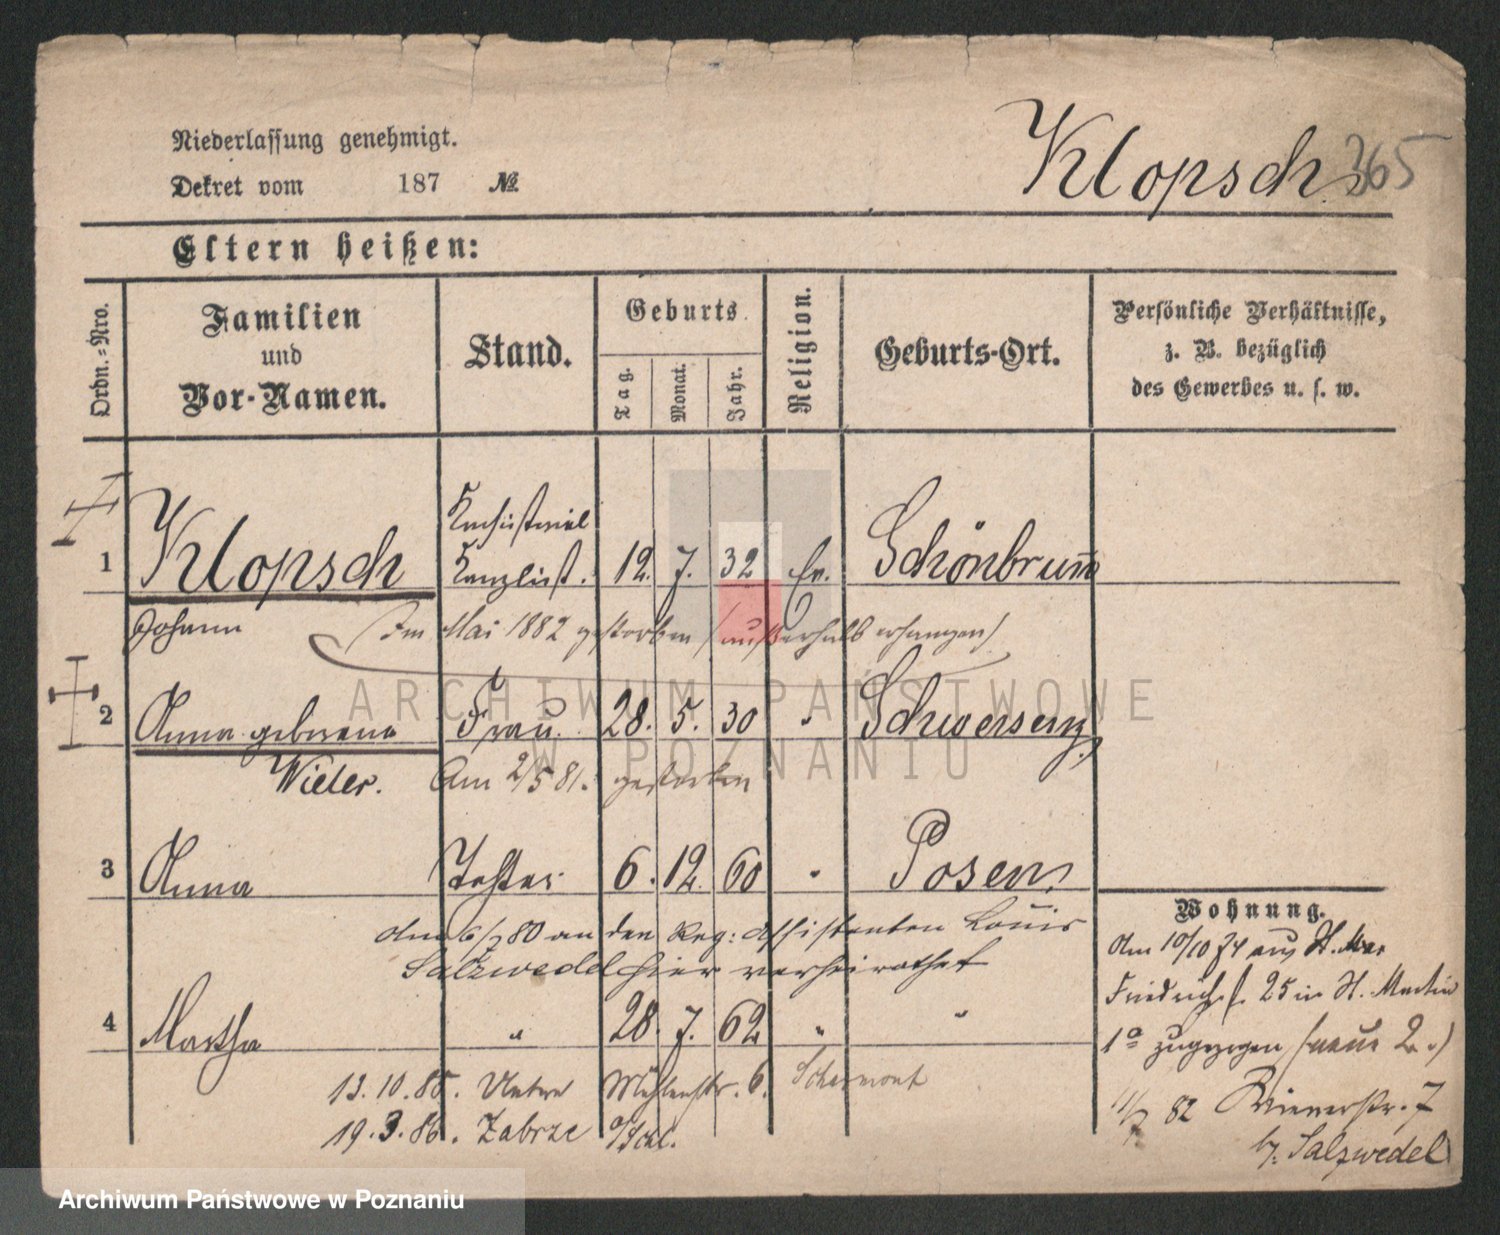 Niederlassung genehmigt.
Dekret vom 187 №
Klopsch 365
Eltern heißen:
Ordn.-Nro.
Familien und Vor-Namen.
Stand.
Geburts
Tag. Monat. Jahr.
Religion.
Geburts-Ort.
Persönliche Verhältnisse,
z. B. bezüglich
des Gewerbes u. s. w.
Konsistorial
1 Klopsch Kanzlist. 12. 7. 32 Ev. Schönbrunn
Johann (Im Mai 1882 gestorben (außerhalb erhangen)
2 Anna geborene Frau. 28. 5. 30 " Schwersenz
Wieler. Am 2/5 81. gestorben
3 Anna Tochter 6. 12. 60 " Posen
am 6/7 80 an den Reg: Assistenten Louis
Salzwedel hier verheirathet
4 Martha " 28. 7. 62 " "
13. 10. 85. Untere Mühlenstr. 6.
19. 3. 86. Zabrze O/Schl.
Wohnung.
Am 10/10 74 aus
Friedrichst. 25 in St. Martin
1a zugezogen (neue 2.)
11/7 82 Wienerstr. 7
b/. Salzwedel
ARCHIWUM PAŃSTWOWE
W POZNANIU
Archiwum Państwowe w Poznaniu